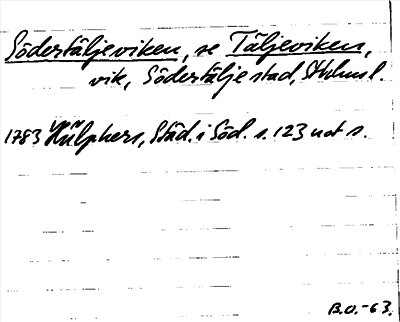 Södertäljeviken, se Täljeviken,
vik, Södertälje stad, Sthlms l.
1783 Hülphers, Städ. i Söd. s. 123 not s.
B.O.-63.